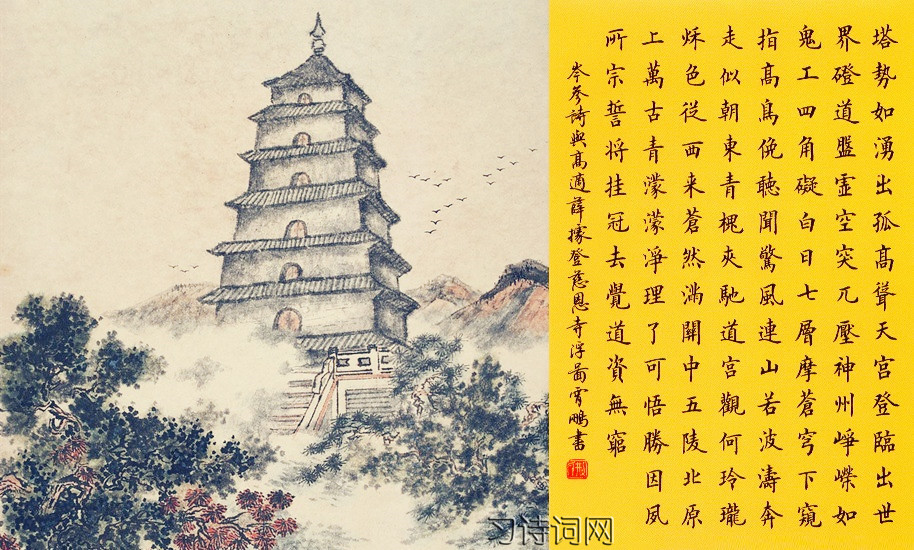 塔勢如湧出孤高聳天宮登臨出世
界磴道盤虛空突兀壓神州崢嶸如
鬼工四角礙白日七層摩蒼穹下窺
指高鳥俛聽聞驚風連山若波濤奔
走似朝東青槐夾馳道宮觀何玲瓏
秋色從西来蒼然滿關中五陵北原
上萬古青濛濛淨理了可悟勝因夙
所宗誓將挂冠去覺道資無窮
岑參詩與高適薛據登慈恩寺浮圖霄鵬書
习诗词网